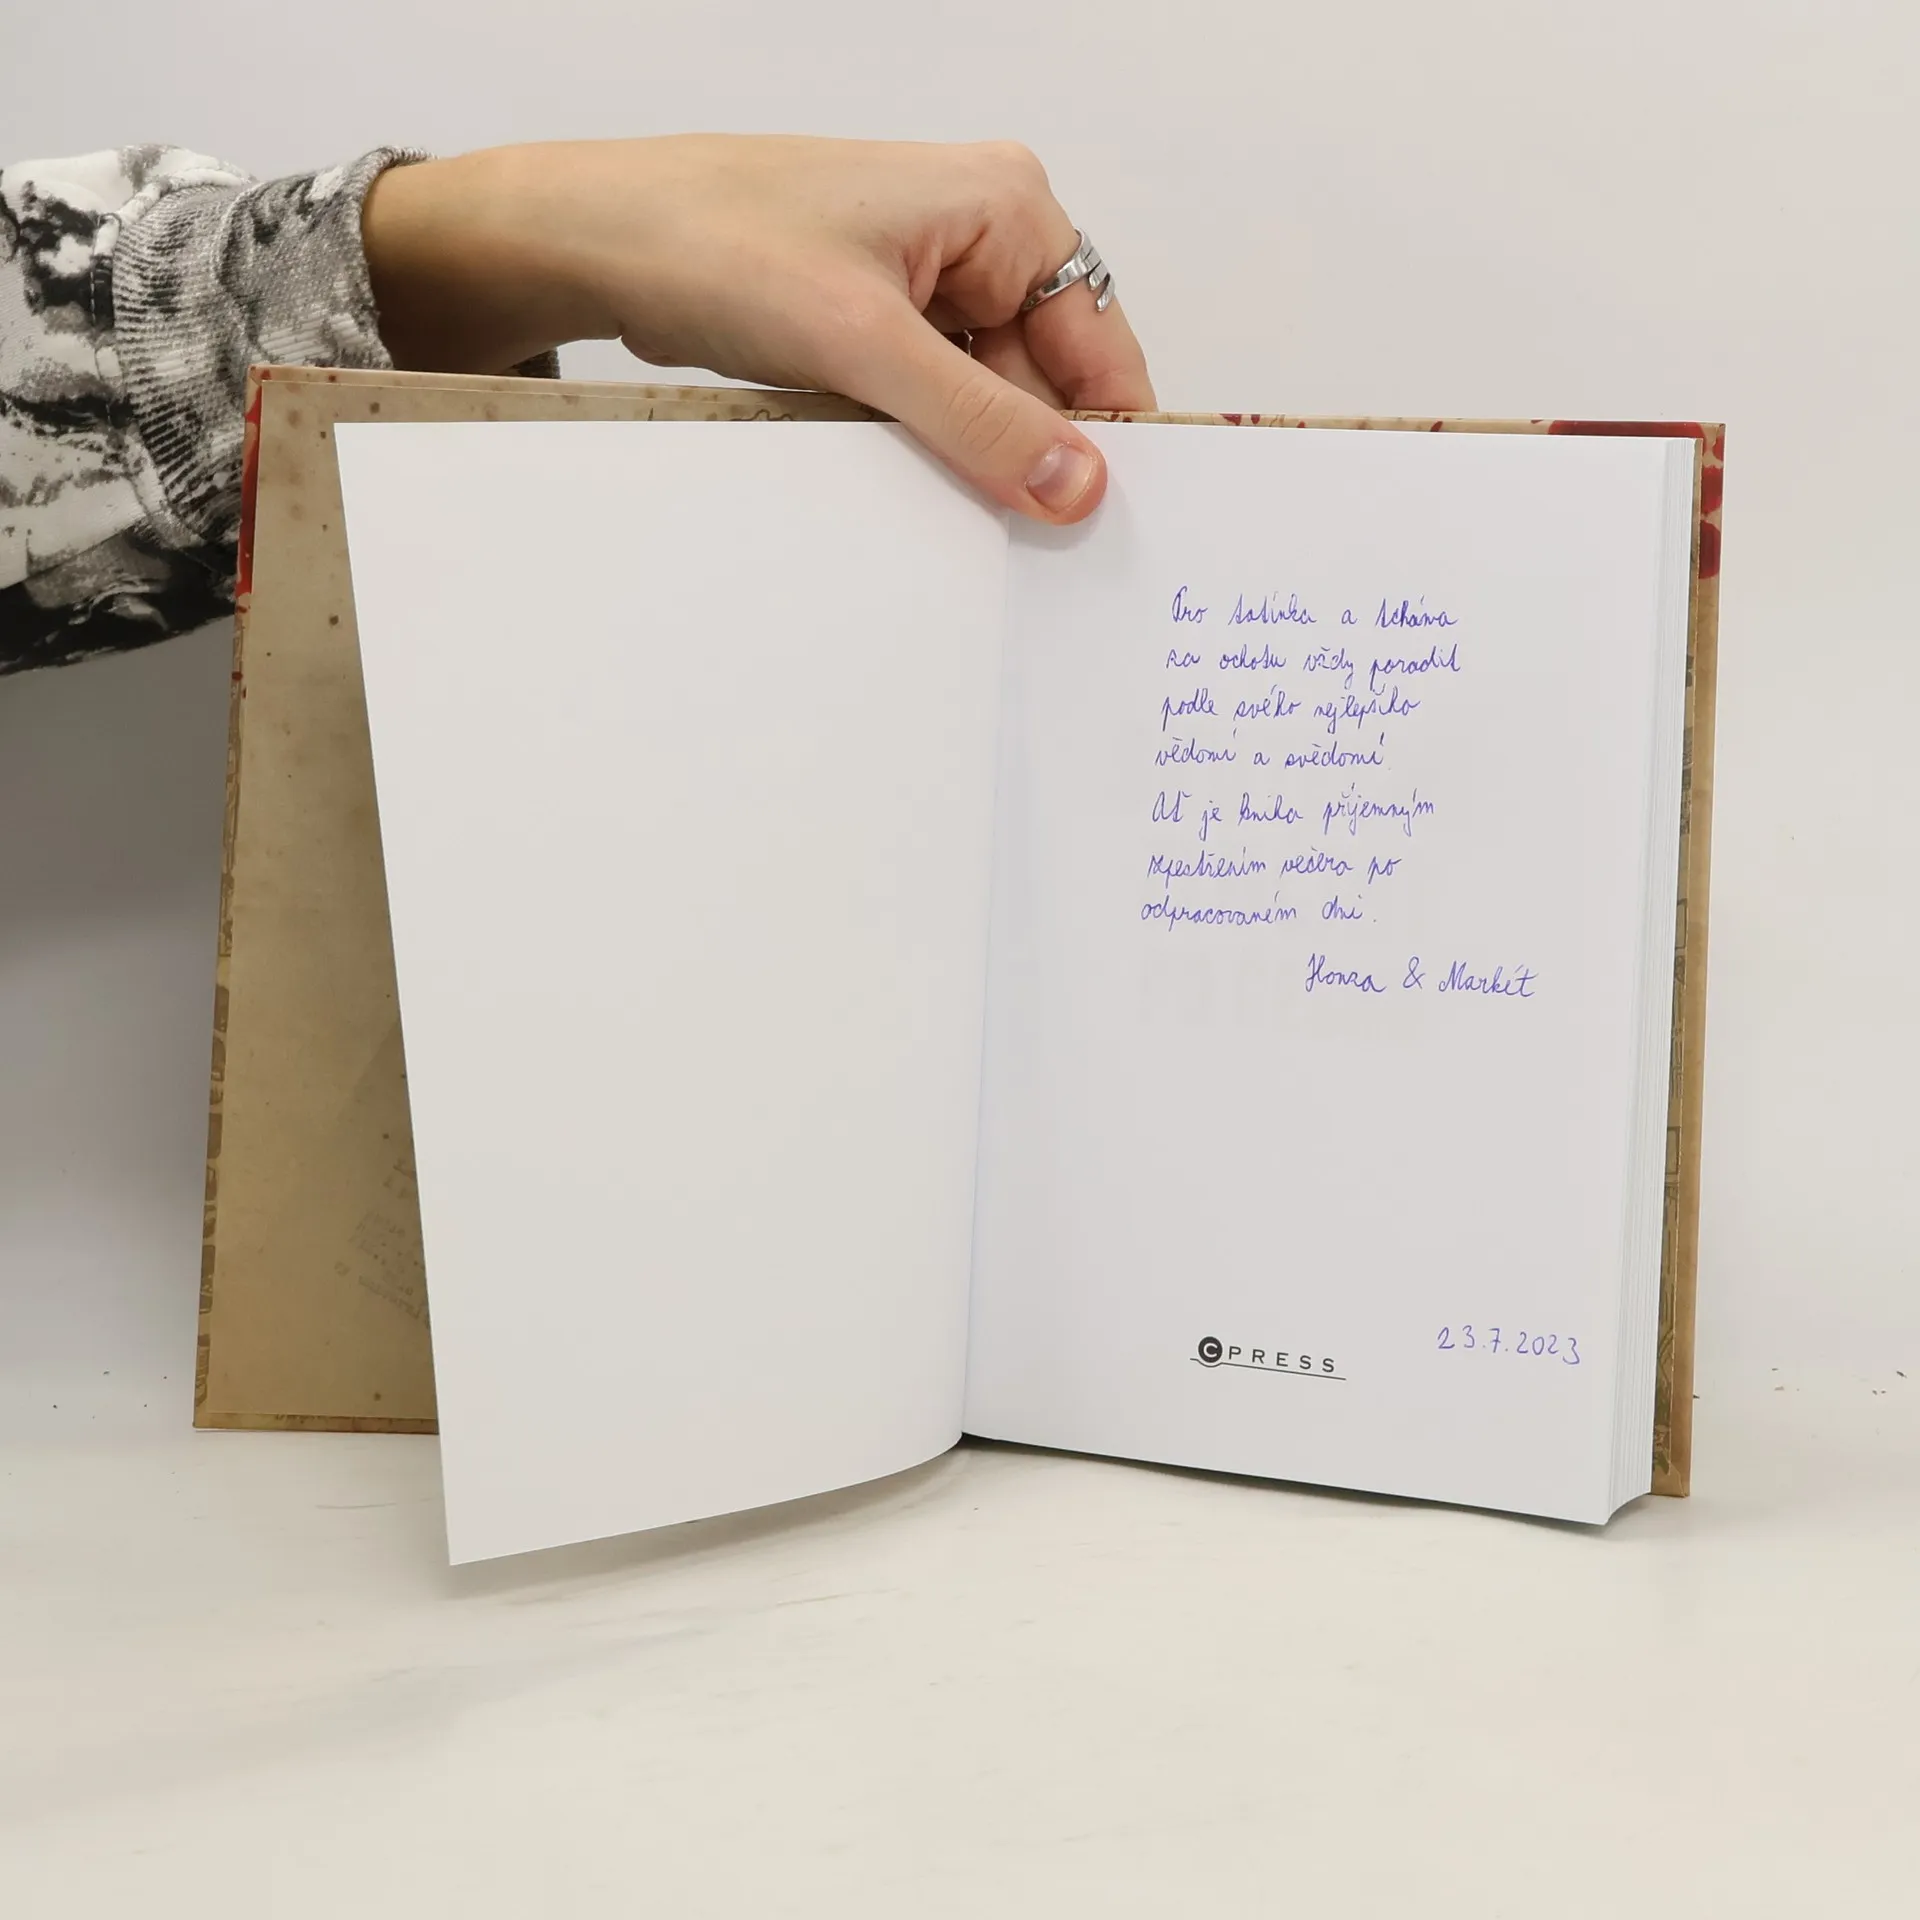 Pro tatínka a tchána
za ochotu vždy poradit
podle svého nejlepšího
vědomí a svědomí.
Ať je kniha příjemným
zpestřením večera po
odpracovaném dni.
Honza & Markét
CPRESS
23.7.2023